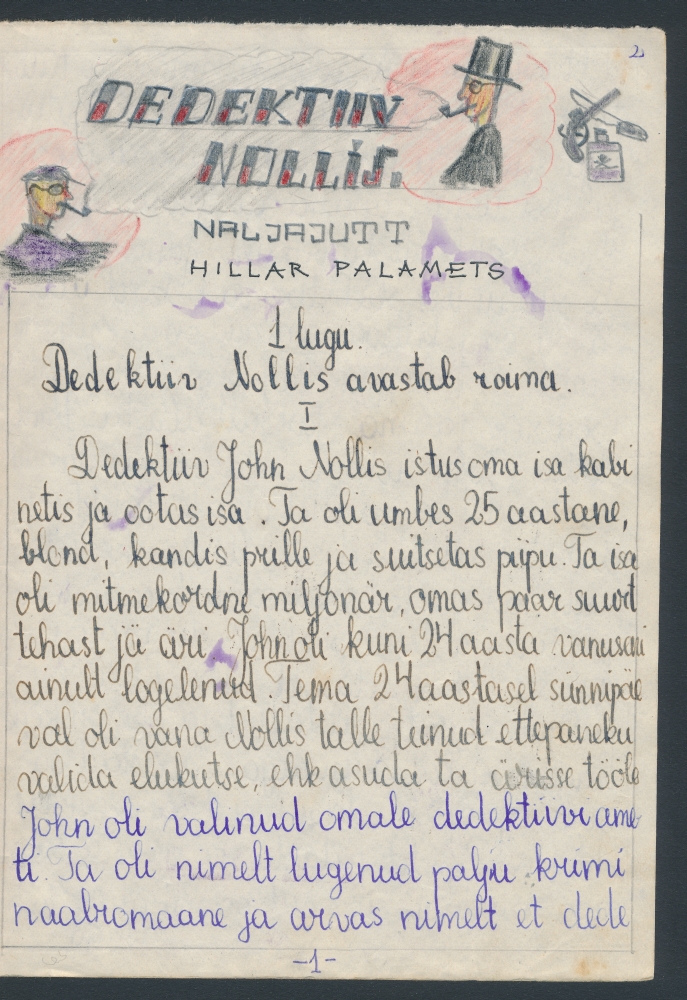 2
DEDEKTIIV
NOLLIS.
NALJAJUTT
HILLAR PALAMETS
1 lugu.
Dedektiiv Nollis avastab roima.
I
Dedektiiv John Nollis istus oma isa kabi
netis ja ootas isa. Ta oli umbes 25 aastane,
blond, kandis prille ja suitsetas piipu. Ta isa
oli mitmekordne miljonär, omas paar suurt
tehast ja äri. John oli kuni 24 aasta vanuseni
ainult logelenud. Tema 24 aastasel sünnipäe
val oli vana Nollis talle teinud ettepaneku
valida elukutse, ehk asuda ta ärisse tööle
John oli valinud omale dedektiivi ame-
ti. Ta oli nimelt lugenud palju krimi
naalromaane ja arvas nimelt et dede
-1-